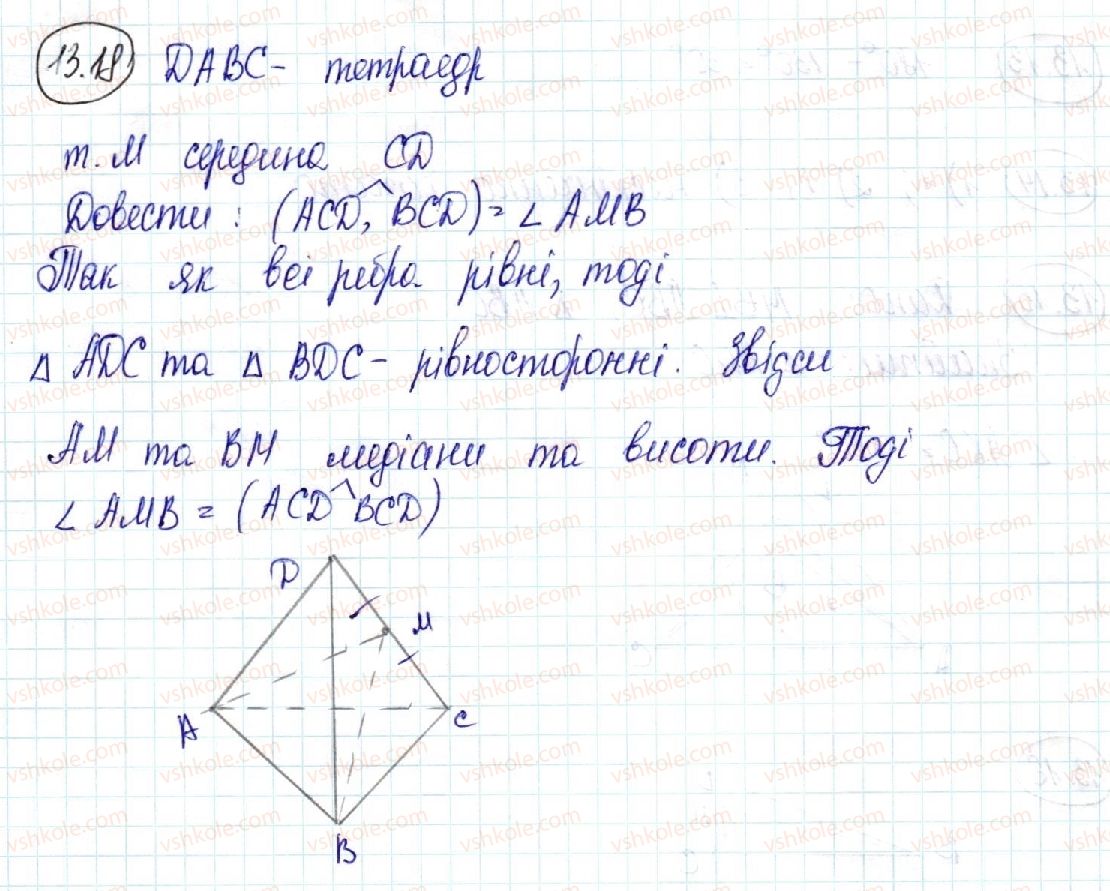 13.18) DABC - тетраедр
т. M середина CD
Довести: (ACD, ^ BCD) = ∠ AMB
Так як всі ребра рівні, тоді
△ ADC та △ BDC - рівносторонні. Звідси
AM та BM медіани та висоти. Тоді
∠ AMB = (ACD ^ BCD)
D
M
A
C
B